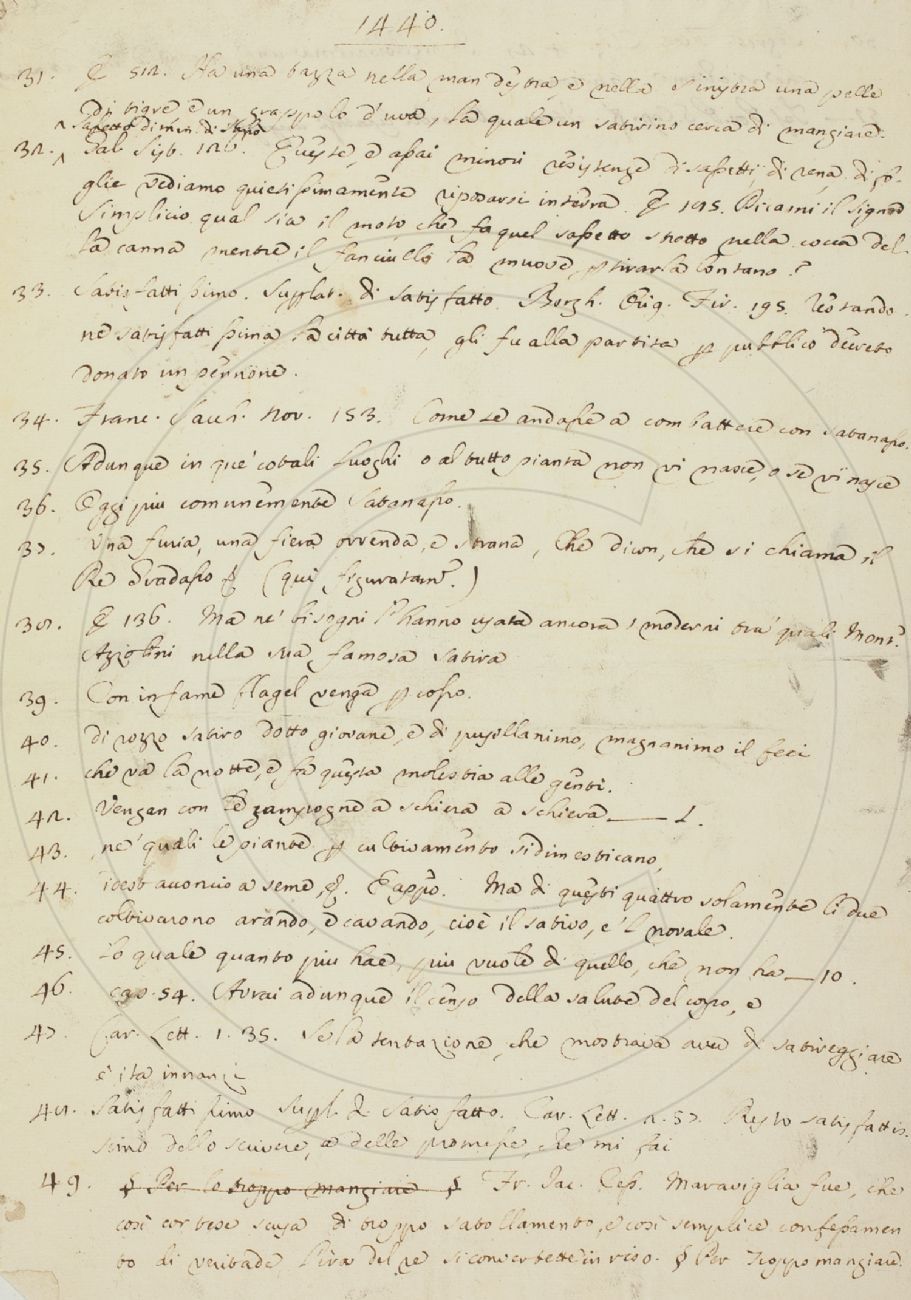 1440.
31. § 512. Ha una tazza nella man destra, e nella sinistra una pelle
di tigre e un grappolo d'uva, la quale un satirino cerca di mangiare.
^ Sassetto. dimin. di Sasso
32. ^ Gal. Sist. 126. Queste, e assai minori resistenze di sassetti, di rena, di fo-
glie vediamo quietissimamente riposarsi in terra. § 195. Dicami il signor
Simplicio qual sia il moto, che fa quel sassetto stretto nella cocca del-
la canna, mentre il fanciullo la muove, p tirarla lontano?
33. Satisfattissimo. Superlat. di satisfatto. Borgh. Orig. Fir. 195. Restando-
ne satisfattissima la città tutta, gli fu alla partita p pubblico decreto
donato un pennone.
34. Franc. Sacch. Nov. 153. Come se andasse a combattere con satanasso.
35. Adunque in que' cotali luoghi o al tutto pianta non vi nasce, o se vi nasce
36. Oggi più comunemente Satanasso.
37. Una furia, una fiera orrenda, e strana, Che dicon, che si chiama il
Re Gradasso (qui figuratam.)
38. § 136. Ma ne' bisogni l'hanno usata ancora i moderni tra' quali Mons.
Azzolini nella sua famosa satira
39. Con infame flagel venga p cosso.
40. di rozzo satiro dotto giovane, e di pusillanimo, magnanimo il feci
41. che va la notte, e fa questa molestia alle genti.
42. Vengan con le zampogne a schiera a schiera —— 1.
43. ne' quali le piante p cultivamento si dimesticano,
44. idest acconcio a seme, Ma di questi quattro solamente li due
coltivarono arando, e cavando, cioè il sativo, e 'l novale.
45. Lo quale quanto più hae, più vuole di quello, che non ha — 10.
46. cap. 54. Avrai adunque il censo della salute del corpo, e
47. Car. Lett. 1. 35. Se la tentazione, che mostrava aver di satireggiare
è ita innanzi
48. Satisfattissimo Superl. di Satisfatto. Car. Lett. 2. 57. Resto satisfattis-
simo dello scrivere, e delle promesse, che mi fai
49. § Per lo troppo mangiare § Fr. Iac. Cess. Maraviglia fue, che
così cortese scusa di troppo satollamento, e così semplice confessamen
to di veritade l'ira del re si convertette in riso. § Per troppo mangiare.